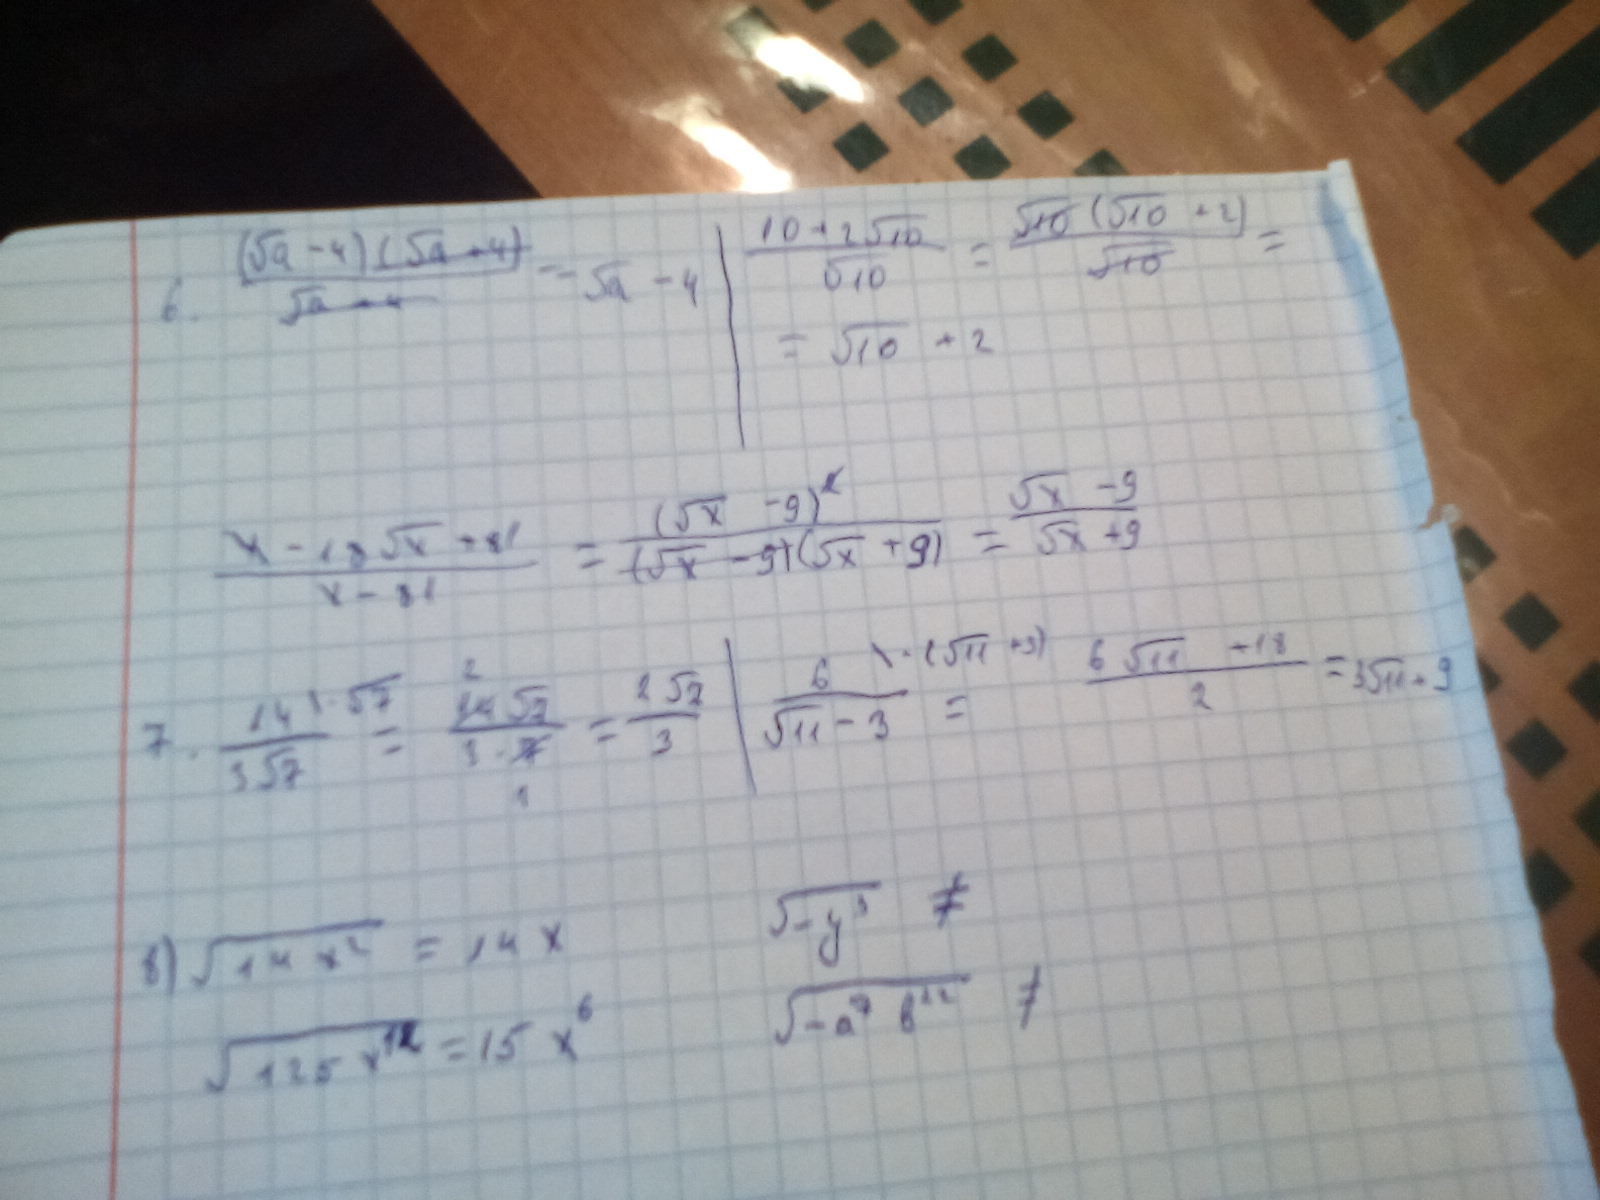 6. (√a - 4)(√a + 4) / √a + 4 = √a - 4 | 10 + 2√10 / √10 = √10 (√10 + 2) / √10 =
= √10 + 2
x - 18√x + 81 / x - 81 = (√x - 9)² / (√x - 9)(√x + 9) = √x - 9 / √x + 9
7. 14 \·√7 / 3√7 = 2 14√7 / 3·7 1 = 2√7 / 3 | 6 \·(√11 + 3) / √11 - 3 = 6√11 + 18 / 2 = 3√11 + 9
8) √14x² = 14x √-y³ ≠
√125x¹² = 15x⁶ √-a⁷b²² ≠